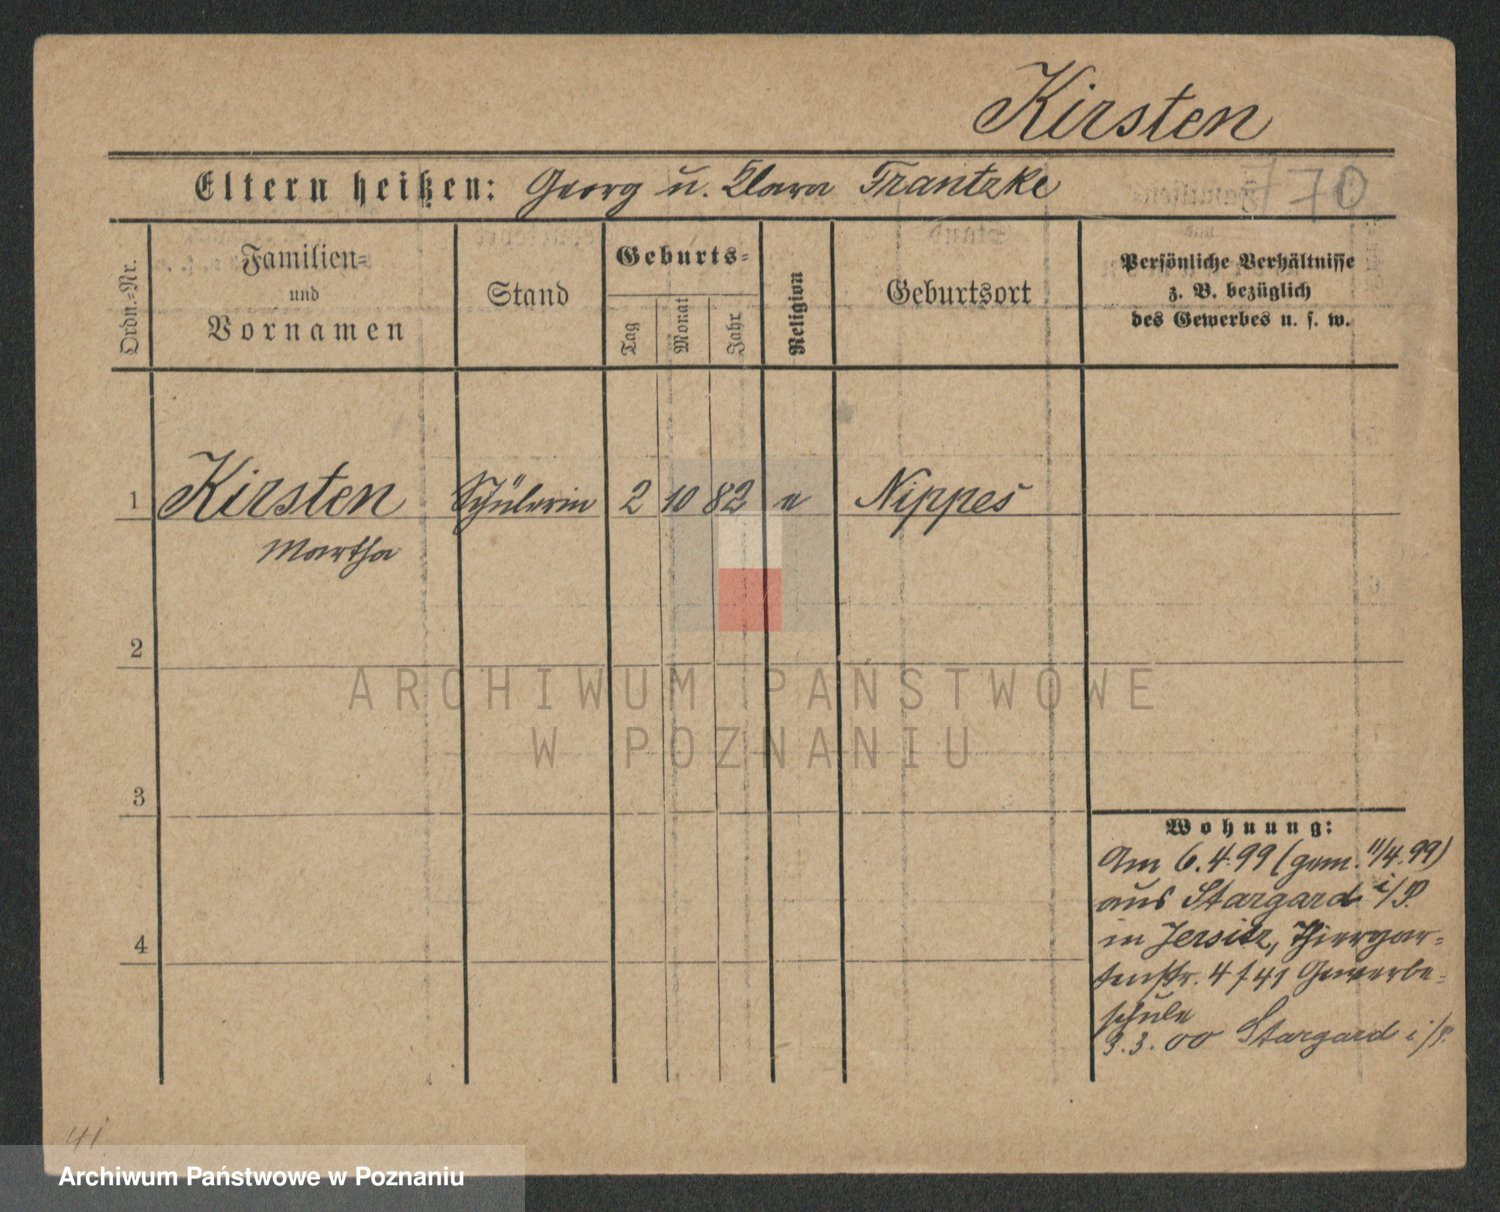 Kirsten
Eltern heißen: Georg u. Clara Frantzke
170
Ordn.=Nr.
Familien=
und
Vornamen
Stand
Geburts=
Tag
Monat
Jahr
Religion
Geburtsort
Persönliche Verhältnisse
z. B. bezüglich
des Gewerbes u. s. w.
1 Kirsten Schülerin 2 10 82 e Nippes
Martha
2
3
4
Wohnung:
Am 6.4.99 (gem. 11/4.99)
aus Stargard i/P.
in Jersitz, Thiergar=
tenstr. 4 f 41 Gewerbe=
schule
3.3.00 Stargard i/P.
41
ARCHIWUM PAŃSTWOWE
W POZNANIU
Archiwum Państwowe w Poznaniu